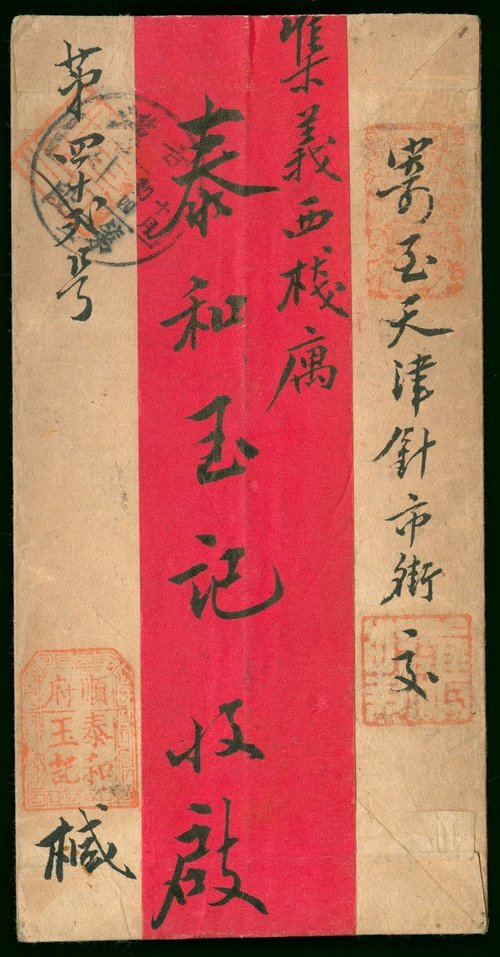 寄至天津針市街交
集義西棧寓
泰和玉記收啟
第四十弍号
順泰和
府玉記
椷